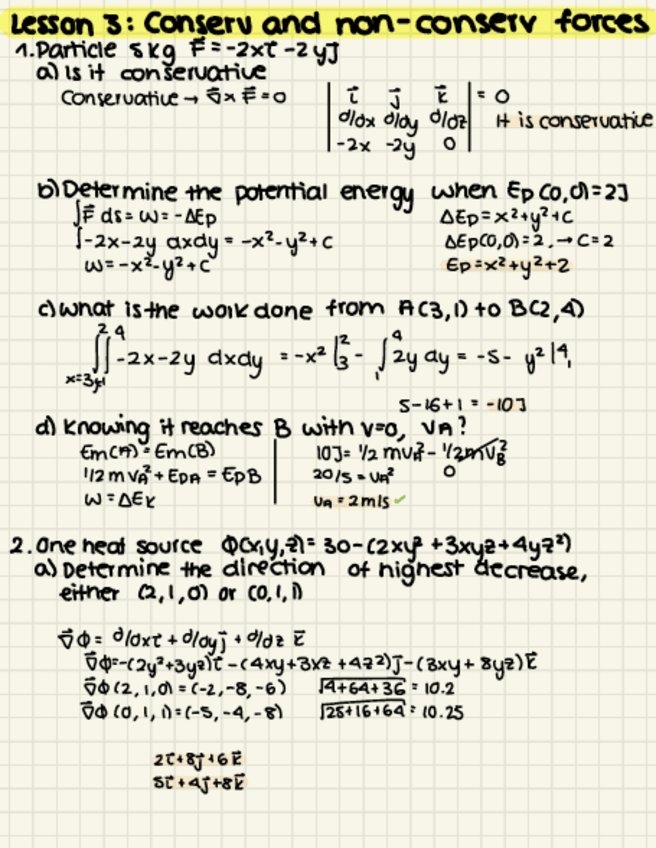 Lesson 3: Conserv and non-conserv forces
1. Particle 5kg F⃗ = -2xi⃗ - 2yj⃗
a) Is it conservative
Conservative → ∇⃗ x F⃗ = 0
| i⃗ j⃗ k⃗ | = 0
| d/dx d/dy d/dz | It is conservative
| -2x -2y 0 |
b) Determine the potential energy when Ep(0,0)=2J
∫F⃗ ds = W = -ΔEp
∫-2x-2y dxdy = -x²-y²+C
W = -x²-y²+C
ΔEp = x²+y²+C
ΔEp(0,0)=2, → C=2
Ep = x²+y²+2
c) What is the work done from A(3,1) to B(2,4)
2 4
∬ -2x-2y dxdy = -x² |²₃ - ∫₁⁴ 2y dy = -5 - y² |⁴₁
x=3 y=1
5-16+1 = -10J
d) Knowing it reaches B with v=0, VA?
Em(A) = Em(B)
1/2 mVA² + EpA = EpB
W = ΔEk
10J = 1/2 mVA² - 1/2 mVB²
0
20/5 = VA²
VA = 2m/s ✓
2. One heat source Φ(x,y,z) = 30-(2xy²+3xyz+4yz²)
a) Determine the direction of highest decrease,
either (2,1,0) or (0,1,1)
∇⃗Φ = d/dx i⃗ + d/dy j⃗ + d/dz k⃗
∇⃗Φ = -(2y²+3yz)i⃗ - (4xy+3xz+4z²)j⃗ - (3xy+8yz)k⃗
∇⃗Φ(2,1,0) = (-2,-8,-6) √4+64+36 = 10.2
∇⃗Φ(0,1,1) = (-5,-4,-8) √25+16+64 = 10.25
2i⃗+8j⃗+6k⃗
5i⃗+4j⃗+8k⃗